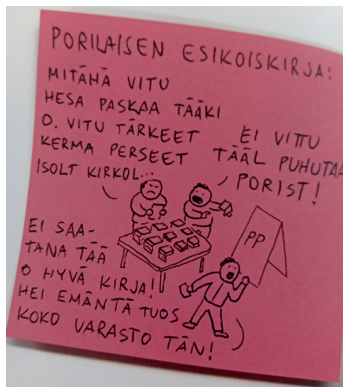 PORILAISEN ESIKOISKIRJA:
MITÄHÄ VITU
HESA PASKAA TÄÄKI
O. VITU TÄRKEET
KERMA PERSEET
ISOLT KIRKOL...
EI VITTU
TÄÄL PUHUTAA
PORIST!
PP
EI SAA-
TANA TÄÄ
O HYVÄ KIRJA!
HEI EMÄNTÄ TUOS
KOKO VARASTO TÄN!